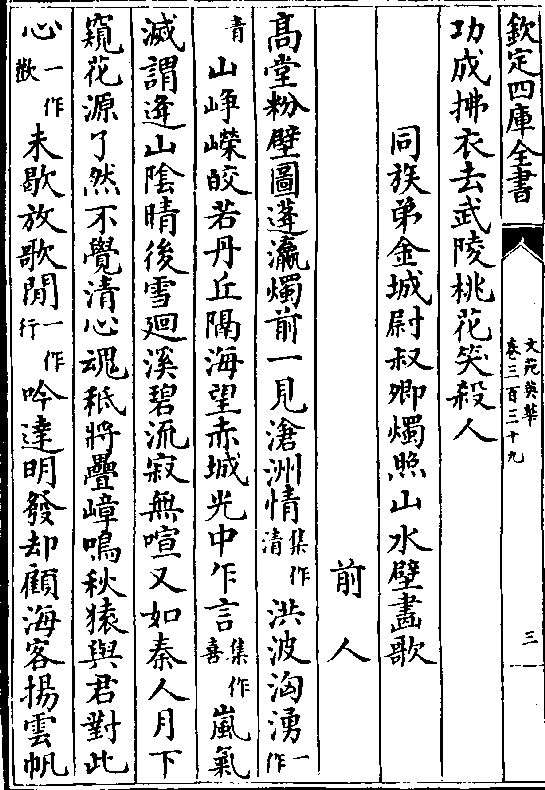 欽定四庫全書
文苑英華
卷三百三十九
三
功成拂衣去武陵桃花笑殺人
同族弟金城尉叔卿燭照山水壁畫歌
前人
髙堂粉壁圖蓬瀛燭前一見滄洲情集作清洪波洶湧一作
青山崢嶸皎若丹丘隔海望赤城光中乍言集作喜嵐氣
滅謂逢山隂晴後雪廻溪碧流寂無喧又如秦人月下
窺花源了然不覺清心魂秪將疊嶂鳴秋猿與君對此
心一作歡未歇放歌閒一作行吟達明發却顧海客揚雲帆